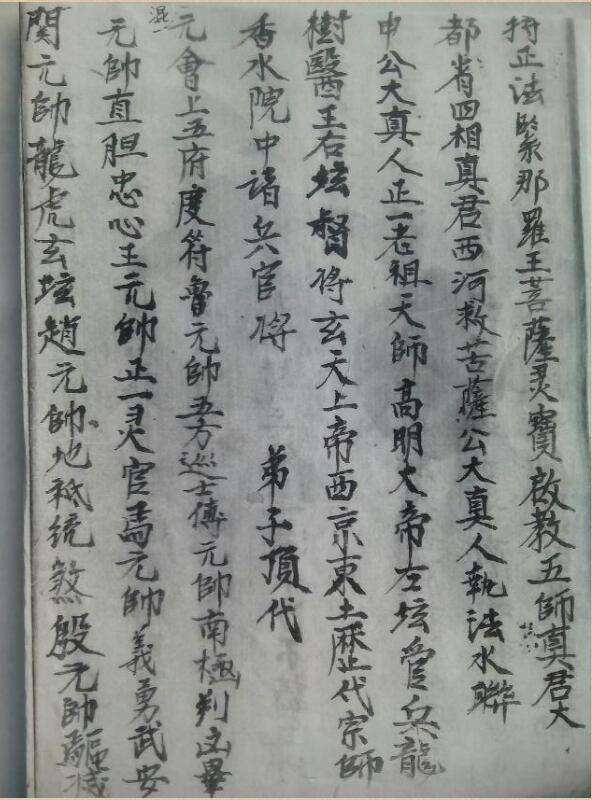 持正法緊那羅王菩薩灵寶啟教五師真君大
都省四相真君西河救苦薩公大真人執法水聯
申公大真人正一老祖天師高明大帝左坛管兵龍
樹醫王右坛督将玄天上帝西京東土歷代宗師
香水院中諸兵官将 弟子頂代
元會上五府度符魯元帥五方巡士傅元帥南極判凶畢
混
元帥直胆忠心王元帥正一灵官馬元帥義勇武安
関元帥龍虎玄坛趙元帥地祇統煞殷元帥驅